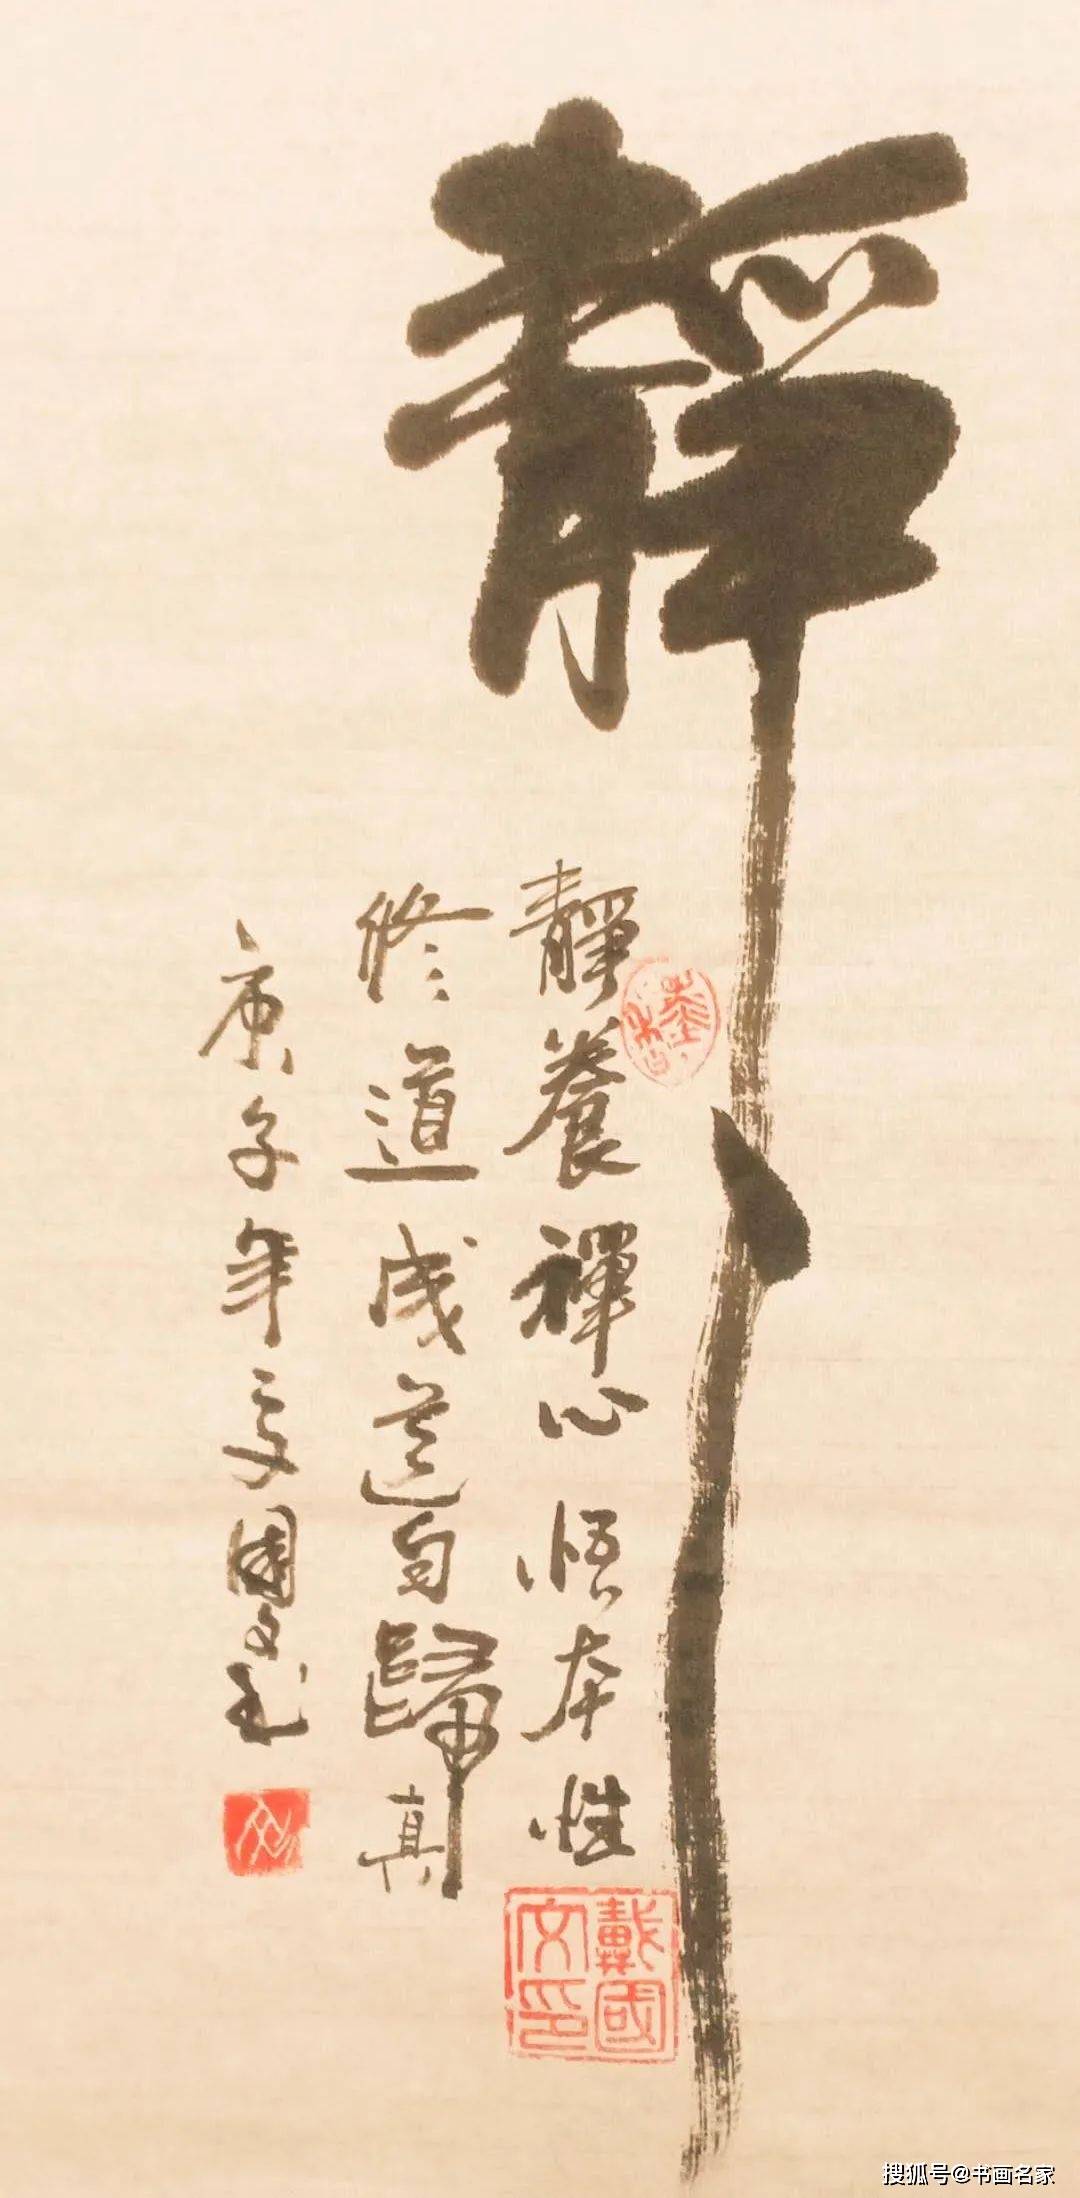 靜
靜養禪心悟本性
修道成道自歸真
庚子年夏國文书
戴國文印
搜狐号@书画名家